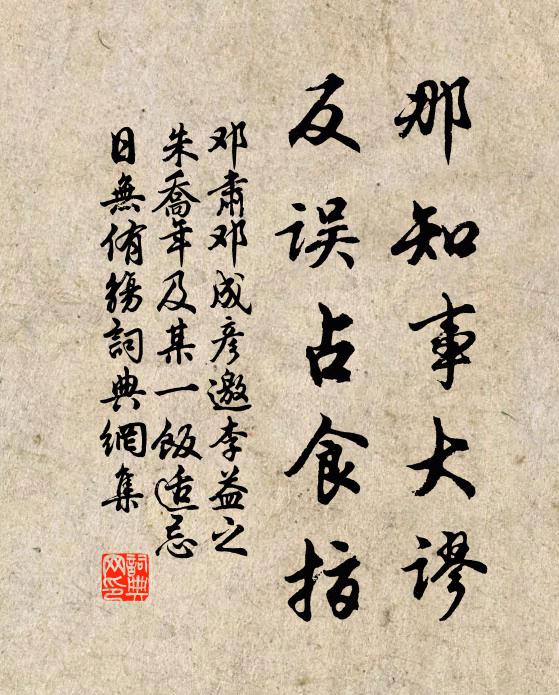 那知事大谬
反误占食指
邓肃邓成彦邀李益之
朱喬年及某一飯适忌
日無侑觞詞典網集
詞典網印